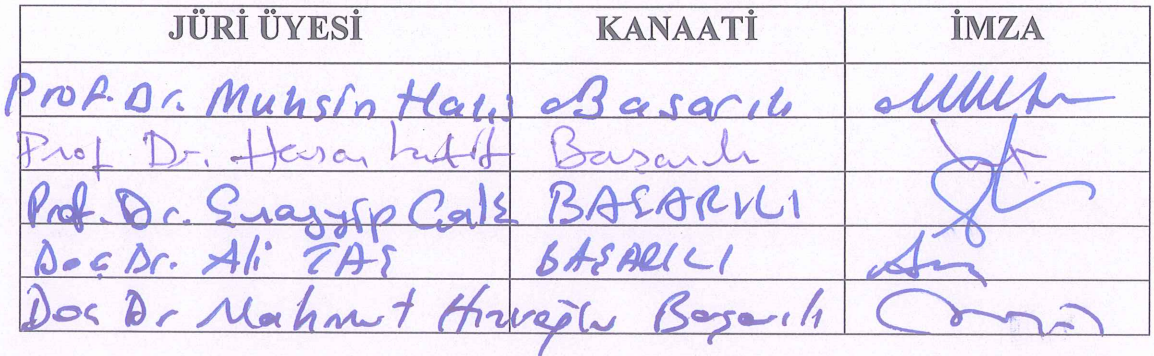 JÜRİ ÜYESİ KANAATİ İMZA
Prof. Dr. Muhsin Halis Başarılı
Prof Dr. Hasan Başarılı
Prof. Dr. BAŞARILI
Doç Dr. Ali TAŞ BAŞARILI
Doç Dr Mahmut Başarılı